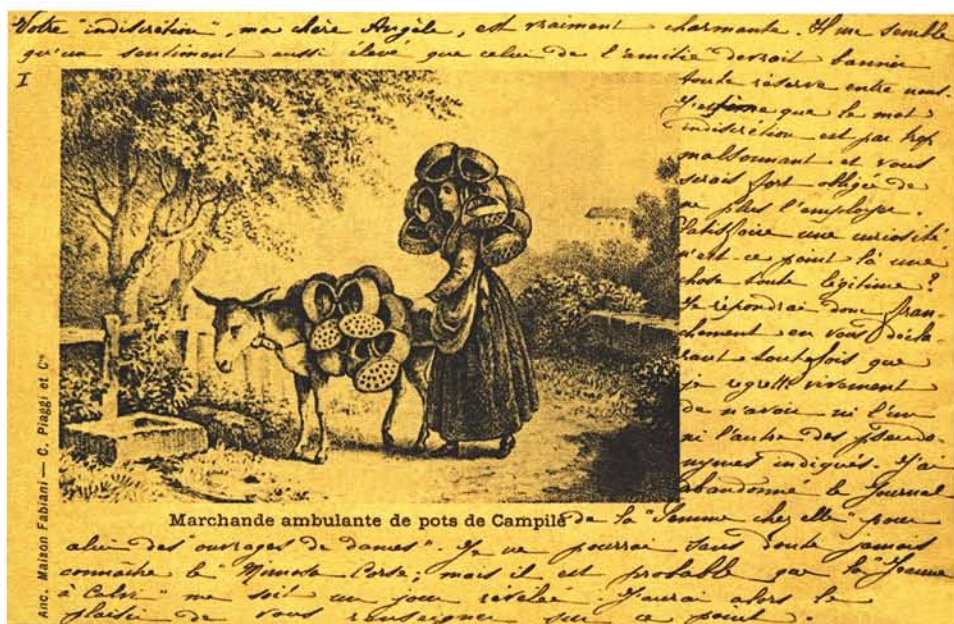 Votre "indiscrétion", ma chère Angèle, est vraiment charmante. Il me semble
qu'un sentiment aussi élevé que celui de l'amitié devrait bannir
I
toute réserve entre nous.
J'estime que le mot
indiscrétion est par trop
malsonnant et vous
serais fort obligée de
ne plus l'employer.
Satisfaire une curiosité
n'est-ce point là une
chose toute légitime?
Je répondrai donc fran-
chement en vous décla-
rant toutefois que
je regrette vivement
de n'avoir ni l'un
ni l'autre des pseudo-
nymes indiqués. J'ai
abandonné le Journal
Marchande ambulante de pots de Campile
de la "Femme chez elle" pour
celui des "ouvrages de dames". Je ne pourrai sans doute jamais
connaître le "Mimosa Corse; mais il est probable que la "Jeanne
à Calvi" me soit un jour révélée. J'aurai alors le
plaisir de vous renseigner sur ce point.
Anc. Maison Fabiani — C. Piaggi et Cie